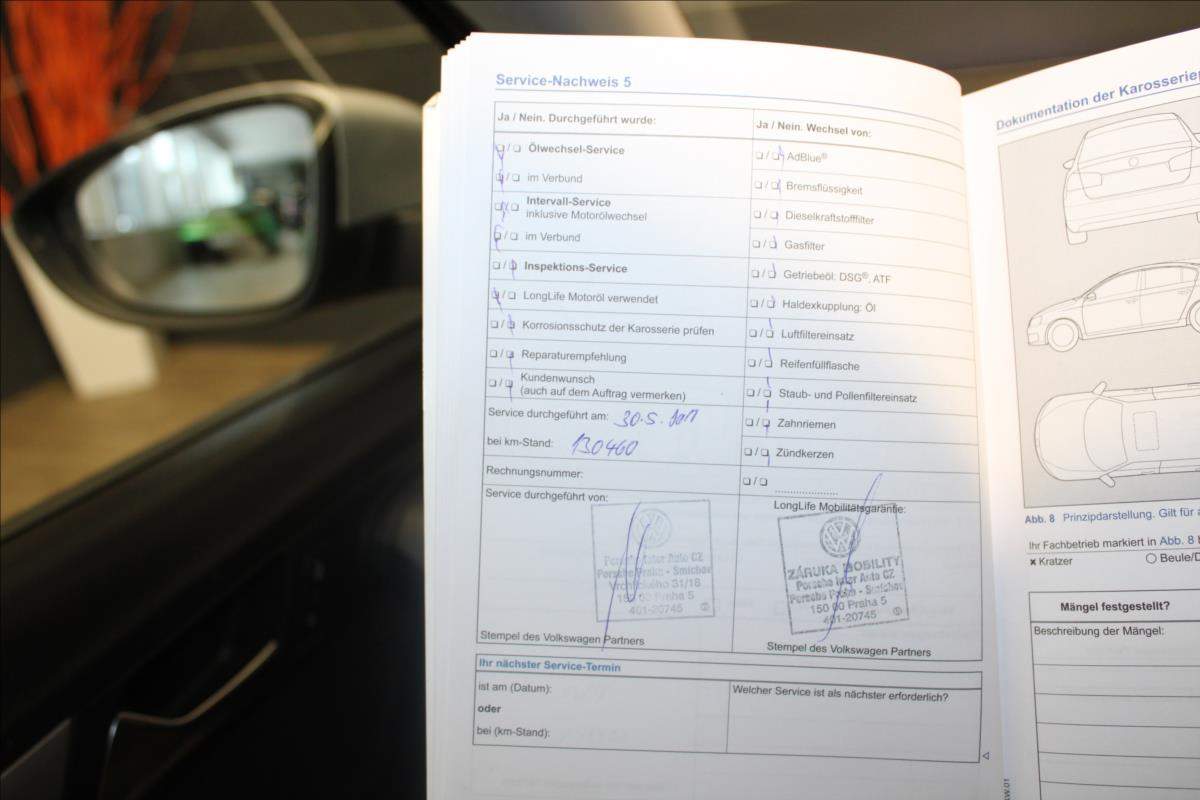 Service-Nachweis 5
Ja / Nein. Durchgeführt wurde:
Ölwechsel-Service
im Verbund
Intervall-Service
inklusive Motorölwechsel
im Verbund
Inspektions-Service
LongLife Motoröl verwendet
Korrosionsschutz der Karosserie prüfen
Reparaturempfehlung
Kundenwunsch
(auch auf dem Auftrag vermerken)
Service durchgeführt am: 30.5.
bei km-Stand: 130460
Rechnungsnummer:
Service durchgeführt von:
Porsche Inter Auto CZ
Porsche Praha - Smíchov
Vrchlického 31/18
150 00 Praha 5
401-20745
Stempel des Volkswagen Partners
Ja / Nein. Wechsel von:
AdBlue®
Bremsflüssigkeit
Dieselkraftstofffilter
Gasfilter
Getriebeöl: DSG®, ATF
Haldexkupplung: Öl
Luftfiltereinsatz
Reifenfüllflasche
Staub- und Pollenfiltereinsatz
Zahnriemen
Zündkerzen
LongLife Mobilitätsgarantie:
ZÁRUKA MOBILITY
Porsche Inter Auto CZ
Porsche Praha - Smíchov
150 00 Praha 5
401-20745
Stempel des Volkswagen Partners
Ihr nächster Service-Termin
ist am (Datum):
oder
bei (km-Stand):
Welcher Service ist als nächster erforderlich?
Dokumentation der
Abb. 8 Prinzipdarstellung. Gilt für
Ihr Fachbetrieb markiert in Abb. 8
× Kratzer
Mängel festgestellt?
Beschreibung der Mängel: